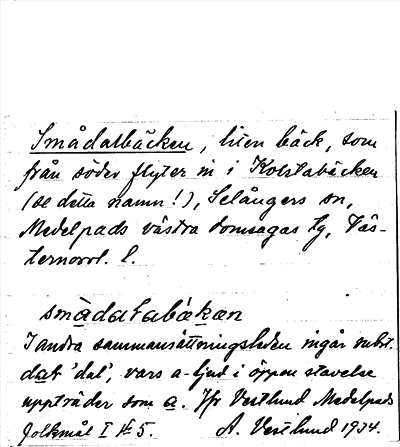 Smådalsbäcken, liten bäck, som
från söder flyter in i Kolstabäcken
(se detta namn!), Selångers sn,
Medelpads västra domsagas tg, Väs-
ternorrl. l.
smådatabäkan
I andra sammansättningsleden ingår subst.
dal 'dal', vars a-ljud i öppen stavelse
uppträder som a. Jfr Vestlund Medelpads
folkmål I
A. Vestlund 1934.